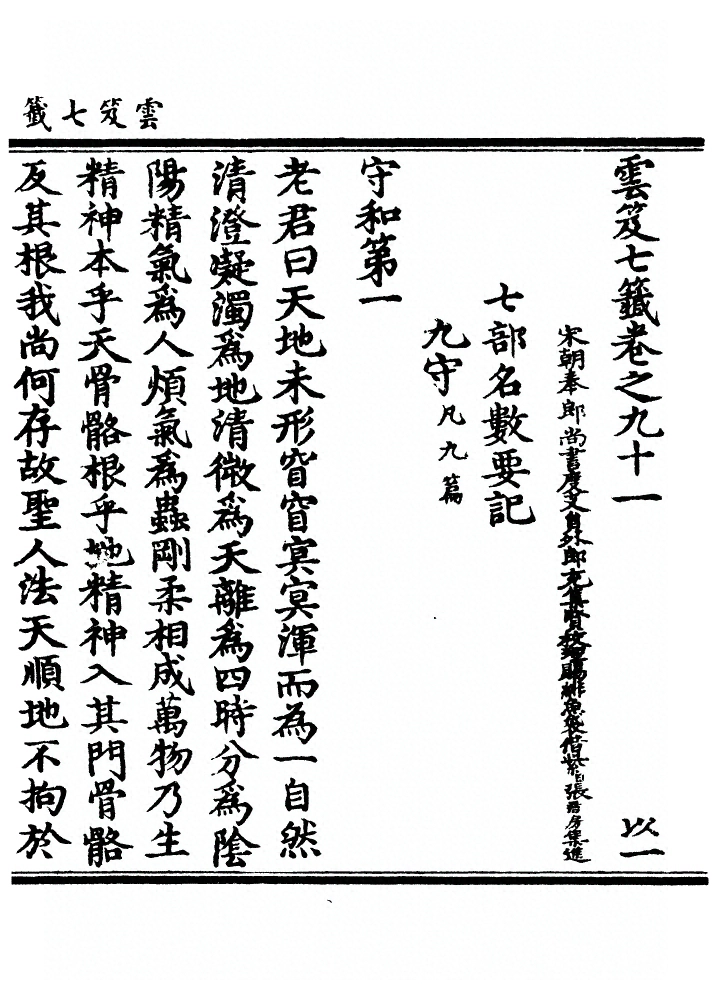 雲笈七籤
雲笈七籤卷之九十一
以一
宋朝奉郎尚書度支員外郎充集賢校理賜緋魚袋借紫臣張君房集進
七部名數要記
九守凡九篇
守和第一
老君曰天地未形窅窅冥冥渾而為一自然
清澄凝濁爲地清微爲天離爲四時分爲陰
陽精氣爲人煩氣爲蟲剛柔相成萬物乃生
精神本乎天骨骼根乎地精神入其門骨骼
反其根我尚何存故聖人法天順地不拘於